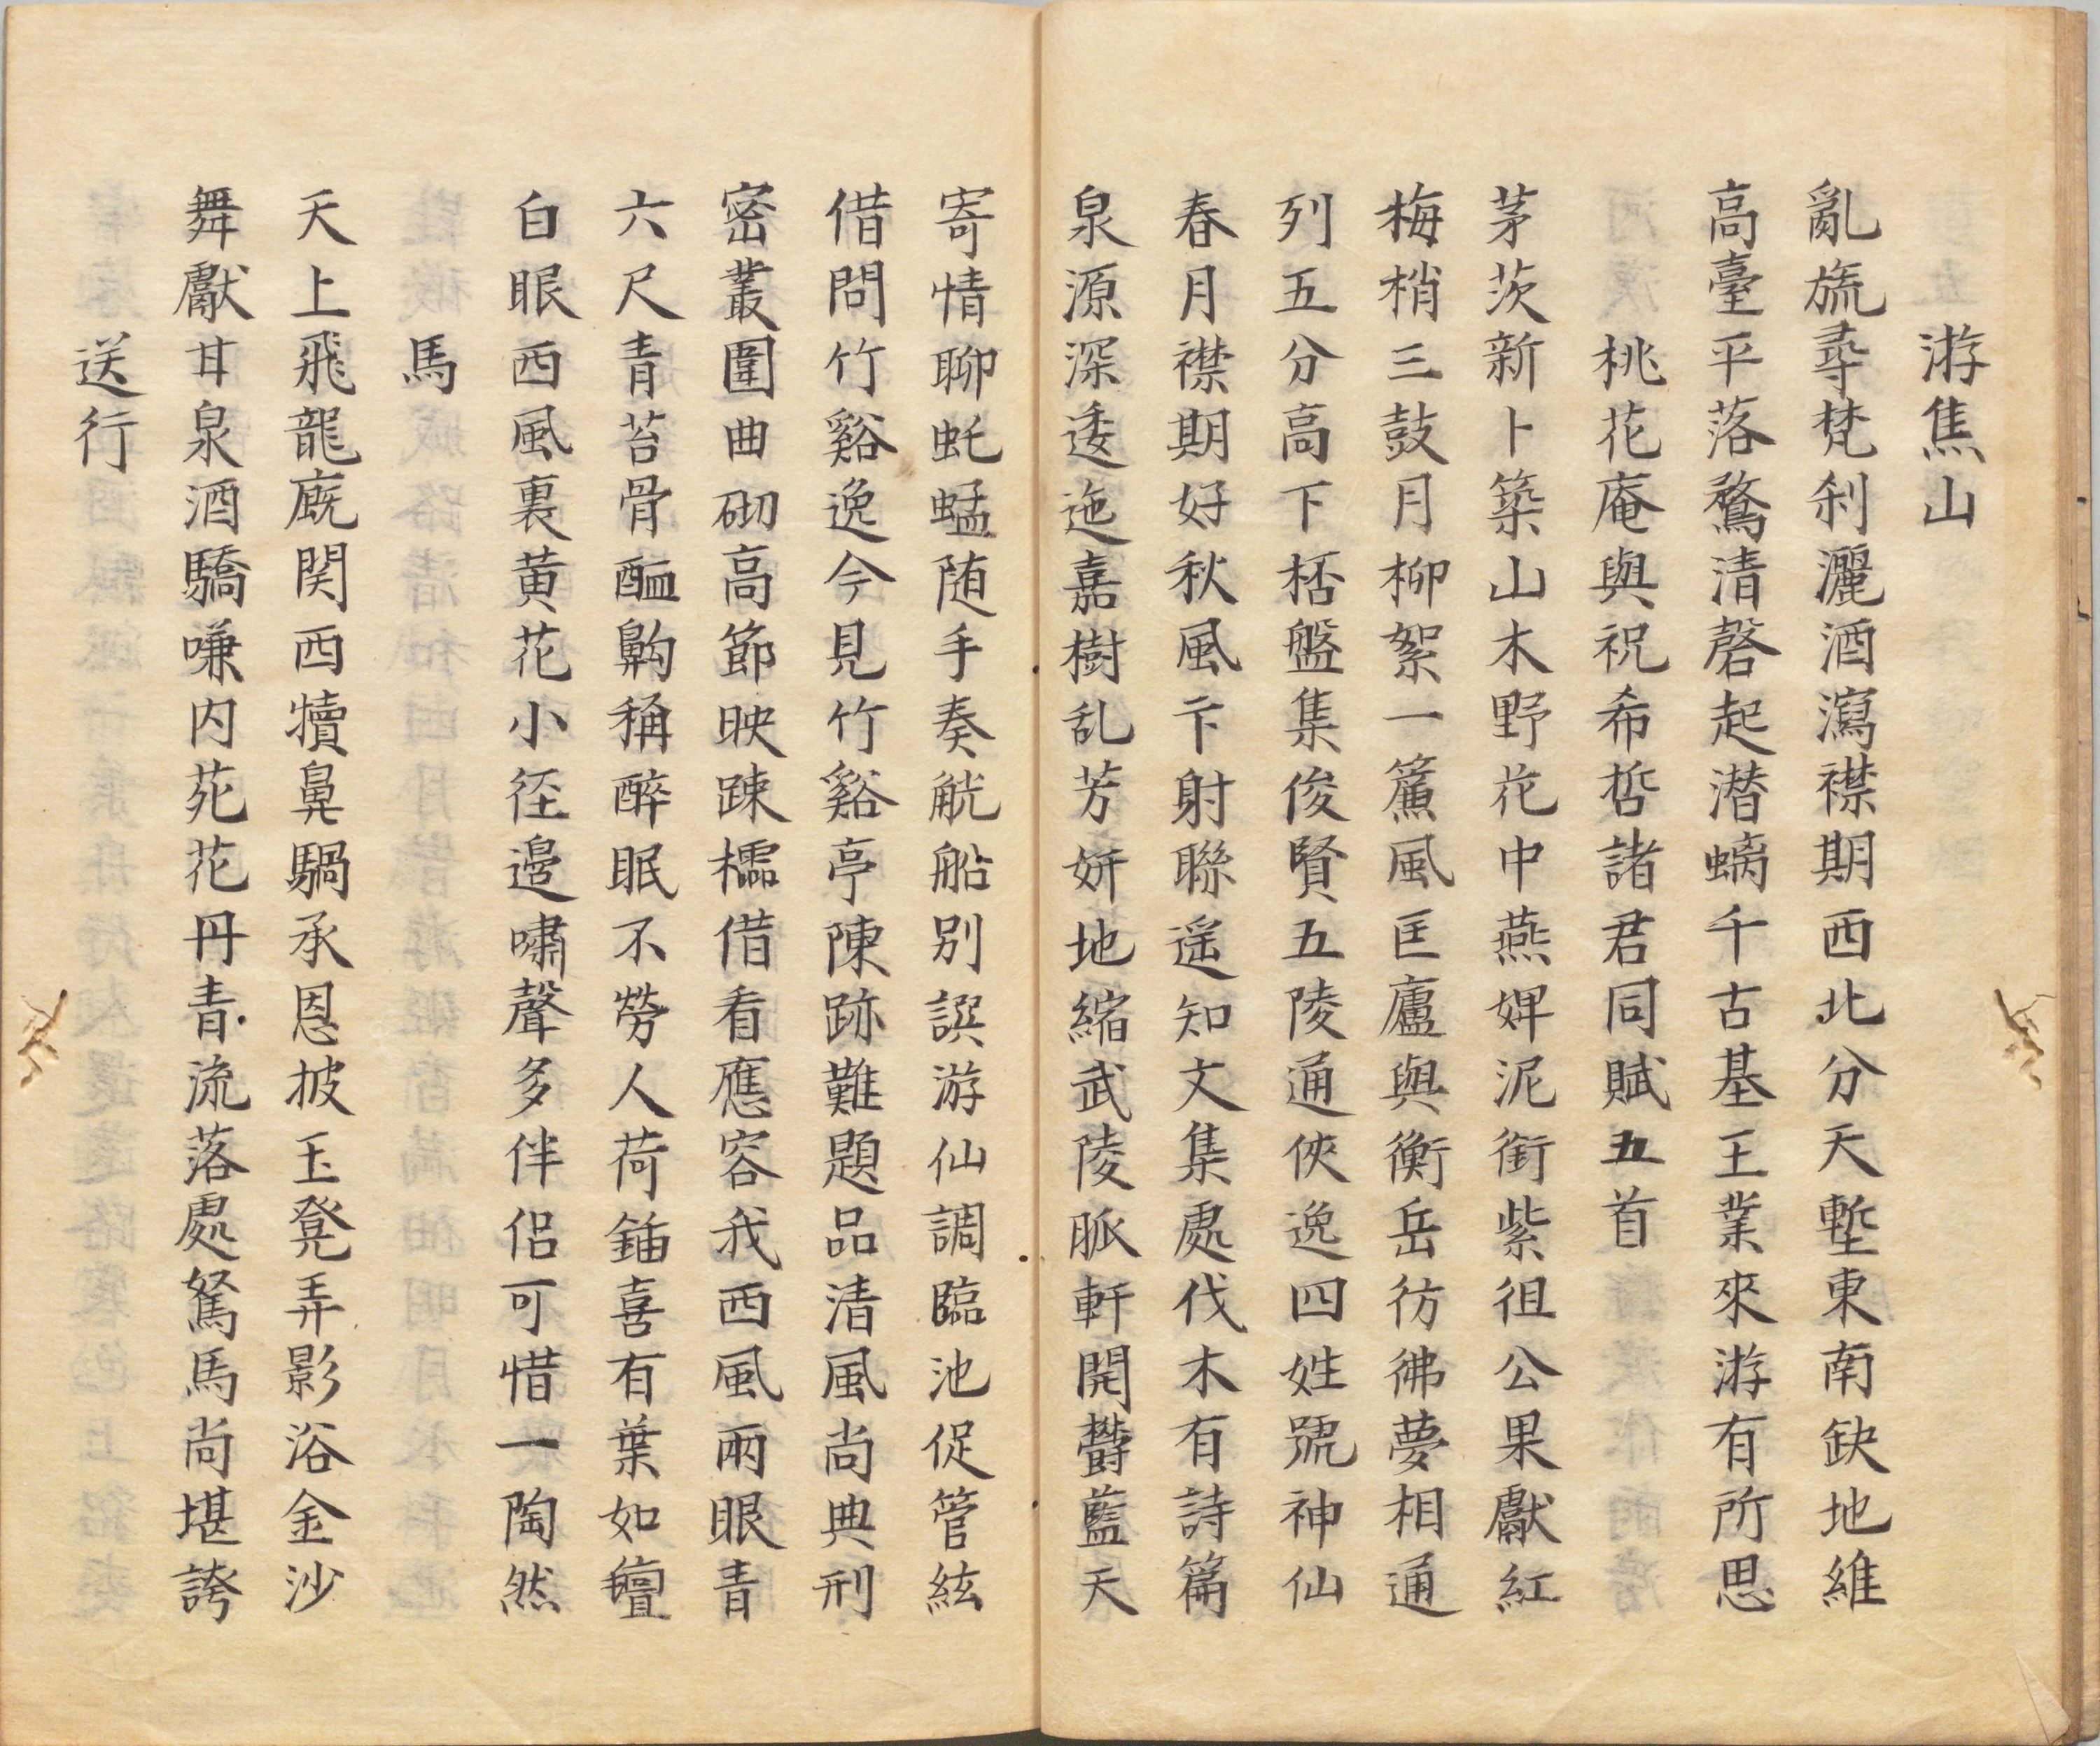 游焦山
亂旒尋梵刹灑酒瀉襟期西北分天塹東南缺地維
高臺平落鶩清磬起潜螭千古基王業來游有所思
桃花庵與祝希哲諸君同賦五首
茅茨新卜築山木野花中燕婢泥銜紫徂公果獻紅
梅梢三鼓月柳絮一簾風匡廬與衡岳彷彿夢相通
列五分高下桮盤集俊賢五陵通俠逸四姓號神仙
春月襟期好秋風卞射聯遥知文集處伐木有詩篇
泉源深逶迤嘉樹乱芳妍地縮武陵脈軒開欝藍天
寄情聊虴蜢随手奏觥船别譔游仙調臨池促管絃
借問竹谿逸今見竹谿亭陳跡難題品清風尚典刑
密叢圍曲砌高節映踈櫺借看應容我西風兩眼青
六尺青苔骨醖齁稱醉眠不勞人荷鍤喜有葉如氊
白眼西風裏黄花小徑邊嘯聲多伴侣可惜一陶然
馬
天上飛龍廐関西犢鼻騧承恩披玉凳弄影浴金沙
舞獻甘泉酒驕嗛内苑花丹青流落處駑馬尚堪誇
送行